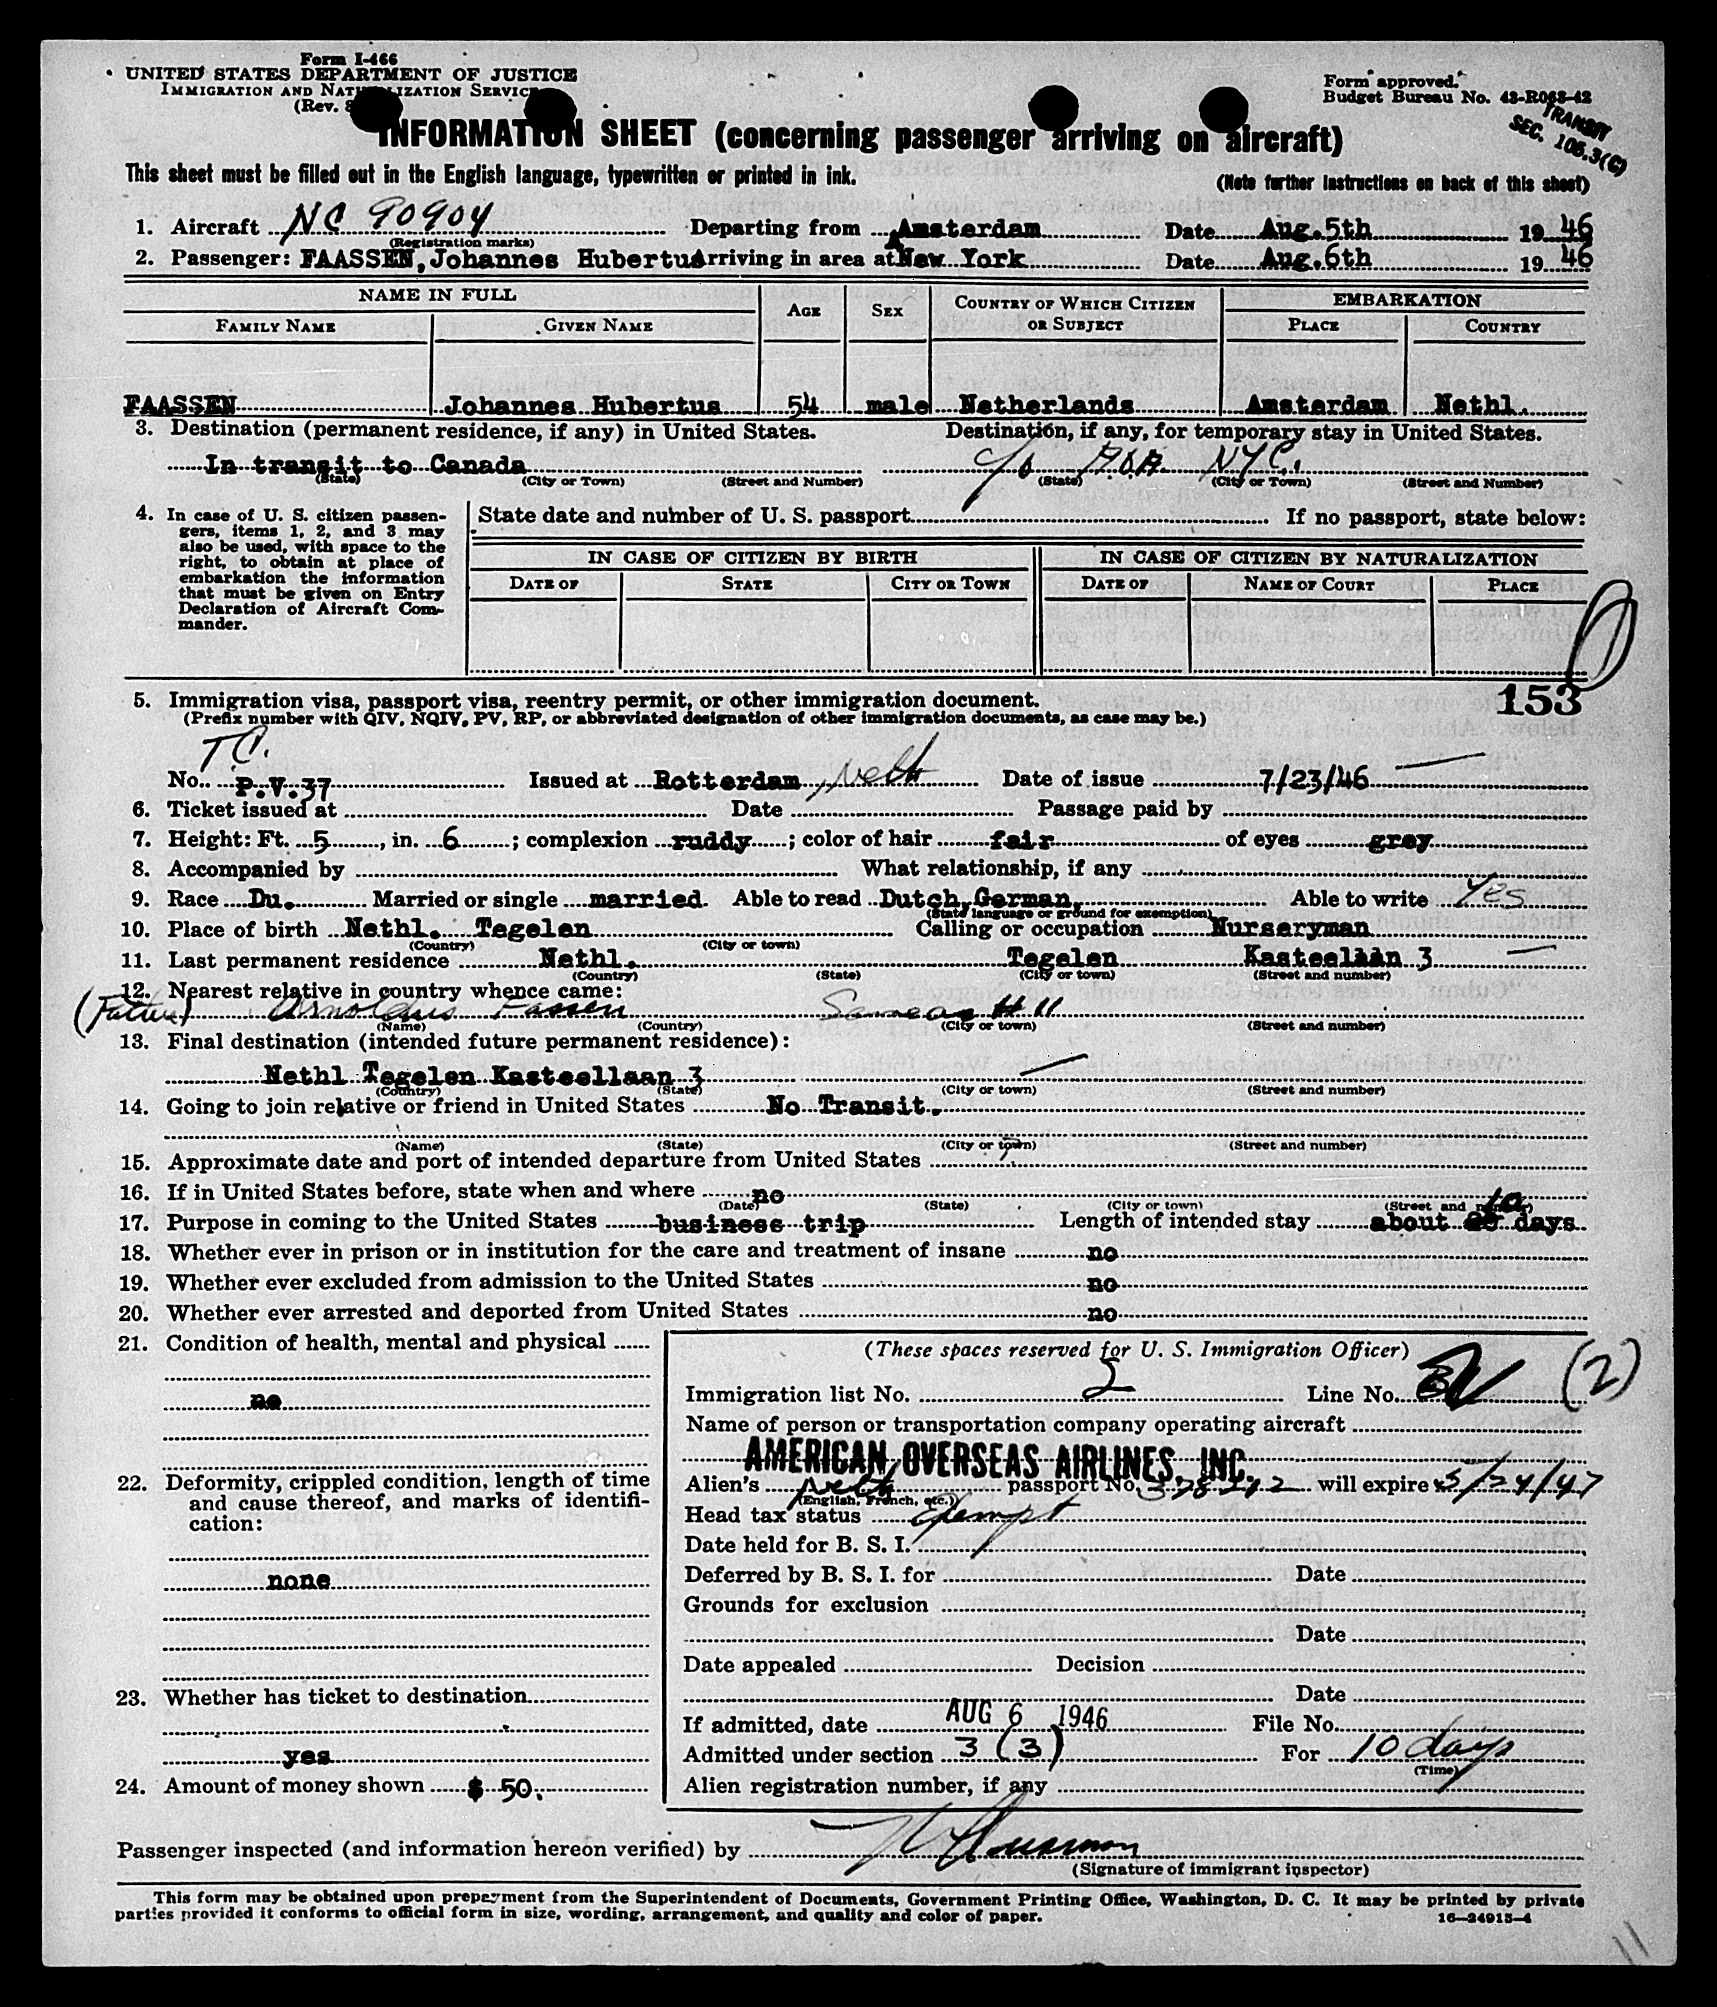 Form I-466
UNITED STATES DEPARTMENT OF JUSTICE
IMMIGRATION AND NATURALIZATION SERVICE
(Rev.
Form approved.
Budget Bureau No. 43-R063-42
TRANSIT
SEC. 106.3(C)
INFORMATION SHEET (concerning passenger arriving on aircraft)
This sheet must be filled out in the English language, typewritten or printed in ink.
(Note further instructions on back of this sheet)
1. Aircraft NC 90904 Departing from Amsterdam Date Aug.5th 1946
(Registration marks)
2. Passenger: FAASSEN, Johannes Hubertus Arriving in area at New York Date Aug.6th 1946
NAME IN FULL AGE SEX COUNTRY OF WHICH CITIZEN OR SUBJECT EMBARKATION
FAMILY NAME GIVEN NAME PLACE COUNTRY
FAASSEN Johannes Hubertus 54 male Netherlands Amsterdam Nethl.
3. Destination (permanent residence, if any) in United States. Destination, if any, for temporary stay in United States.
In transit to Canada c/o NYC.
(State) (City or Town) (Street and Number) (State) (City or Town) (Street and Number)
4. In case of U. S. citizen passengers, items 1, 2, and 3 may also be used, with space to the right, to obtain at place of embarkation the information that must be given on Entry Declaration of Aircraft Commander.
State date and number of U. S. passport If no passport, state below:
IN CASE OF CITIZEN BY BIRTH IN CASE OF CITIZEN BY NATURALIZATION
DATE OF STATE CITY OR TOWN DATE OF NAME OF COURT PLACE
153
5. Immigration visa, passport visa, reentry permit, or other immigration document.
(Prefix number with QIV, NQIV, PV, RP, or abbreviated designation of other immigration documents, as case may be.)
T.C.
No. P.V.37 Issued at Rotterdam, Neth Date of issue 7/23/46
6. Ticket issued at Date Passage paid by
7. Height: Ft. 5, in. 6; complexion ruddy; color of hair fair of eyes grey
8. Accompanied by What relationship, if any
9. Race Du. Married or single married. Able to read Dutch, German, Able to write Yes
(State language or ground for exemption)
10. Place of birth Nethl. Tegelen Calling or occupation Nurseryman
(Country) (City or town)
11. Last permanent residence Nethl. Tegelen Kasteelaan 3
(Country) (State) (City or town) (Street and number)
12. Nearest relative in country whence came:
(Father) Arnoldus Fassen Same as # 11
(Name) (Country) (City or town) (Street and number)
13. Final destination (intended future permanent residence):
Nethl Tegelen Kasteellaan 3
(Country) (State) (City or town) (Street and number)
14. Going to join relative or friend in United States No Transit.
(Name) (State) (City or town) (Street and number)
15. Approximate date and port of intended departure from United States
16. If in United States before, state when and where no
(Date) (State) (City or town) (Street and number)
17. Purpose in coming to the United States business trip Length of intended stay about 10 days
18. Whether ever in prison or in institution for the care and treatment of insane no
19. Whether ever excluded from admission to the United States no
20. Whether ever arrested and deported from United States no
21. Condition of health, mental and physical
no
22. Deformity, crippled condition, length of time and cause thereof, and marks of identification:
none
23. Whether has ticket to destination
yes
24. Amount of money shown $ 50.
(These spaces reserved for U. S. Immigration Officer)
Immigration list No. 2 Line No. (2)
Name of person or transportation company operating aircraft
AMERICAN OVERSEAS AIRLINES, INC.
Alien's Neth passport No. 378212 will expire 5/24/47
(English, French, etc.)
Head tax status Exempt
Date held for B. S. I.
Deferred by B. S. I. for Date
Grounds for exclusion
Date
Date appealed Decision
Date
If admitted, date AUG 6 1946 File No.
Admitted under section 3 (3) For 10 days
(Time)
Alien registration number, if any
Passenger inspected (and information hereon verified) by
(Signature of immigrant inspector)
This form may be obtained upon prepayment from the Superintendent of Documents, Government Printing Office, Washington, D. C. It may be printed by private
parties provided it conforms to official form in size, wording, arrangement, and quality and color of paper.
16—24915-4
11